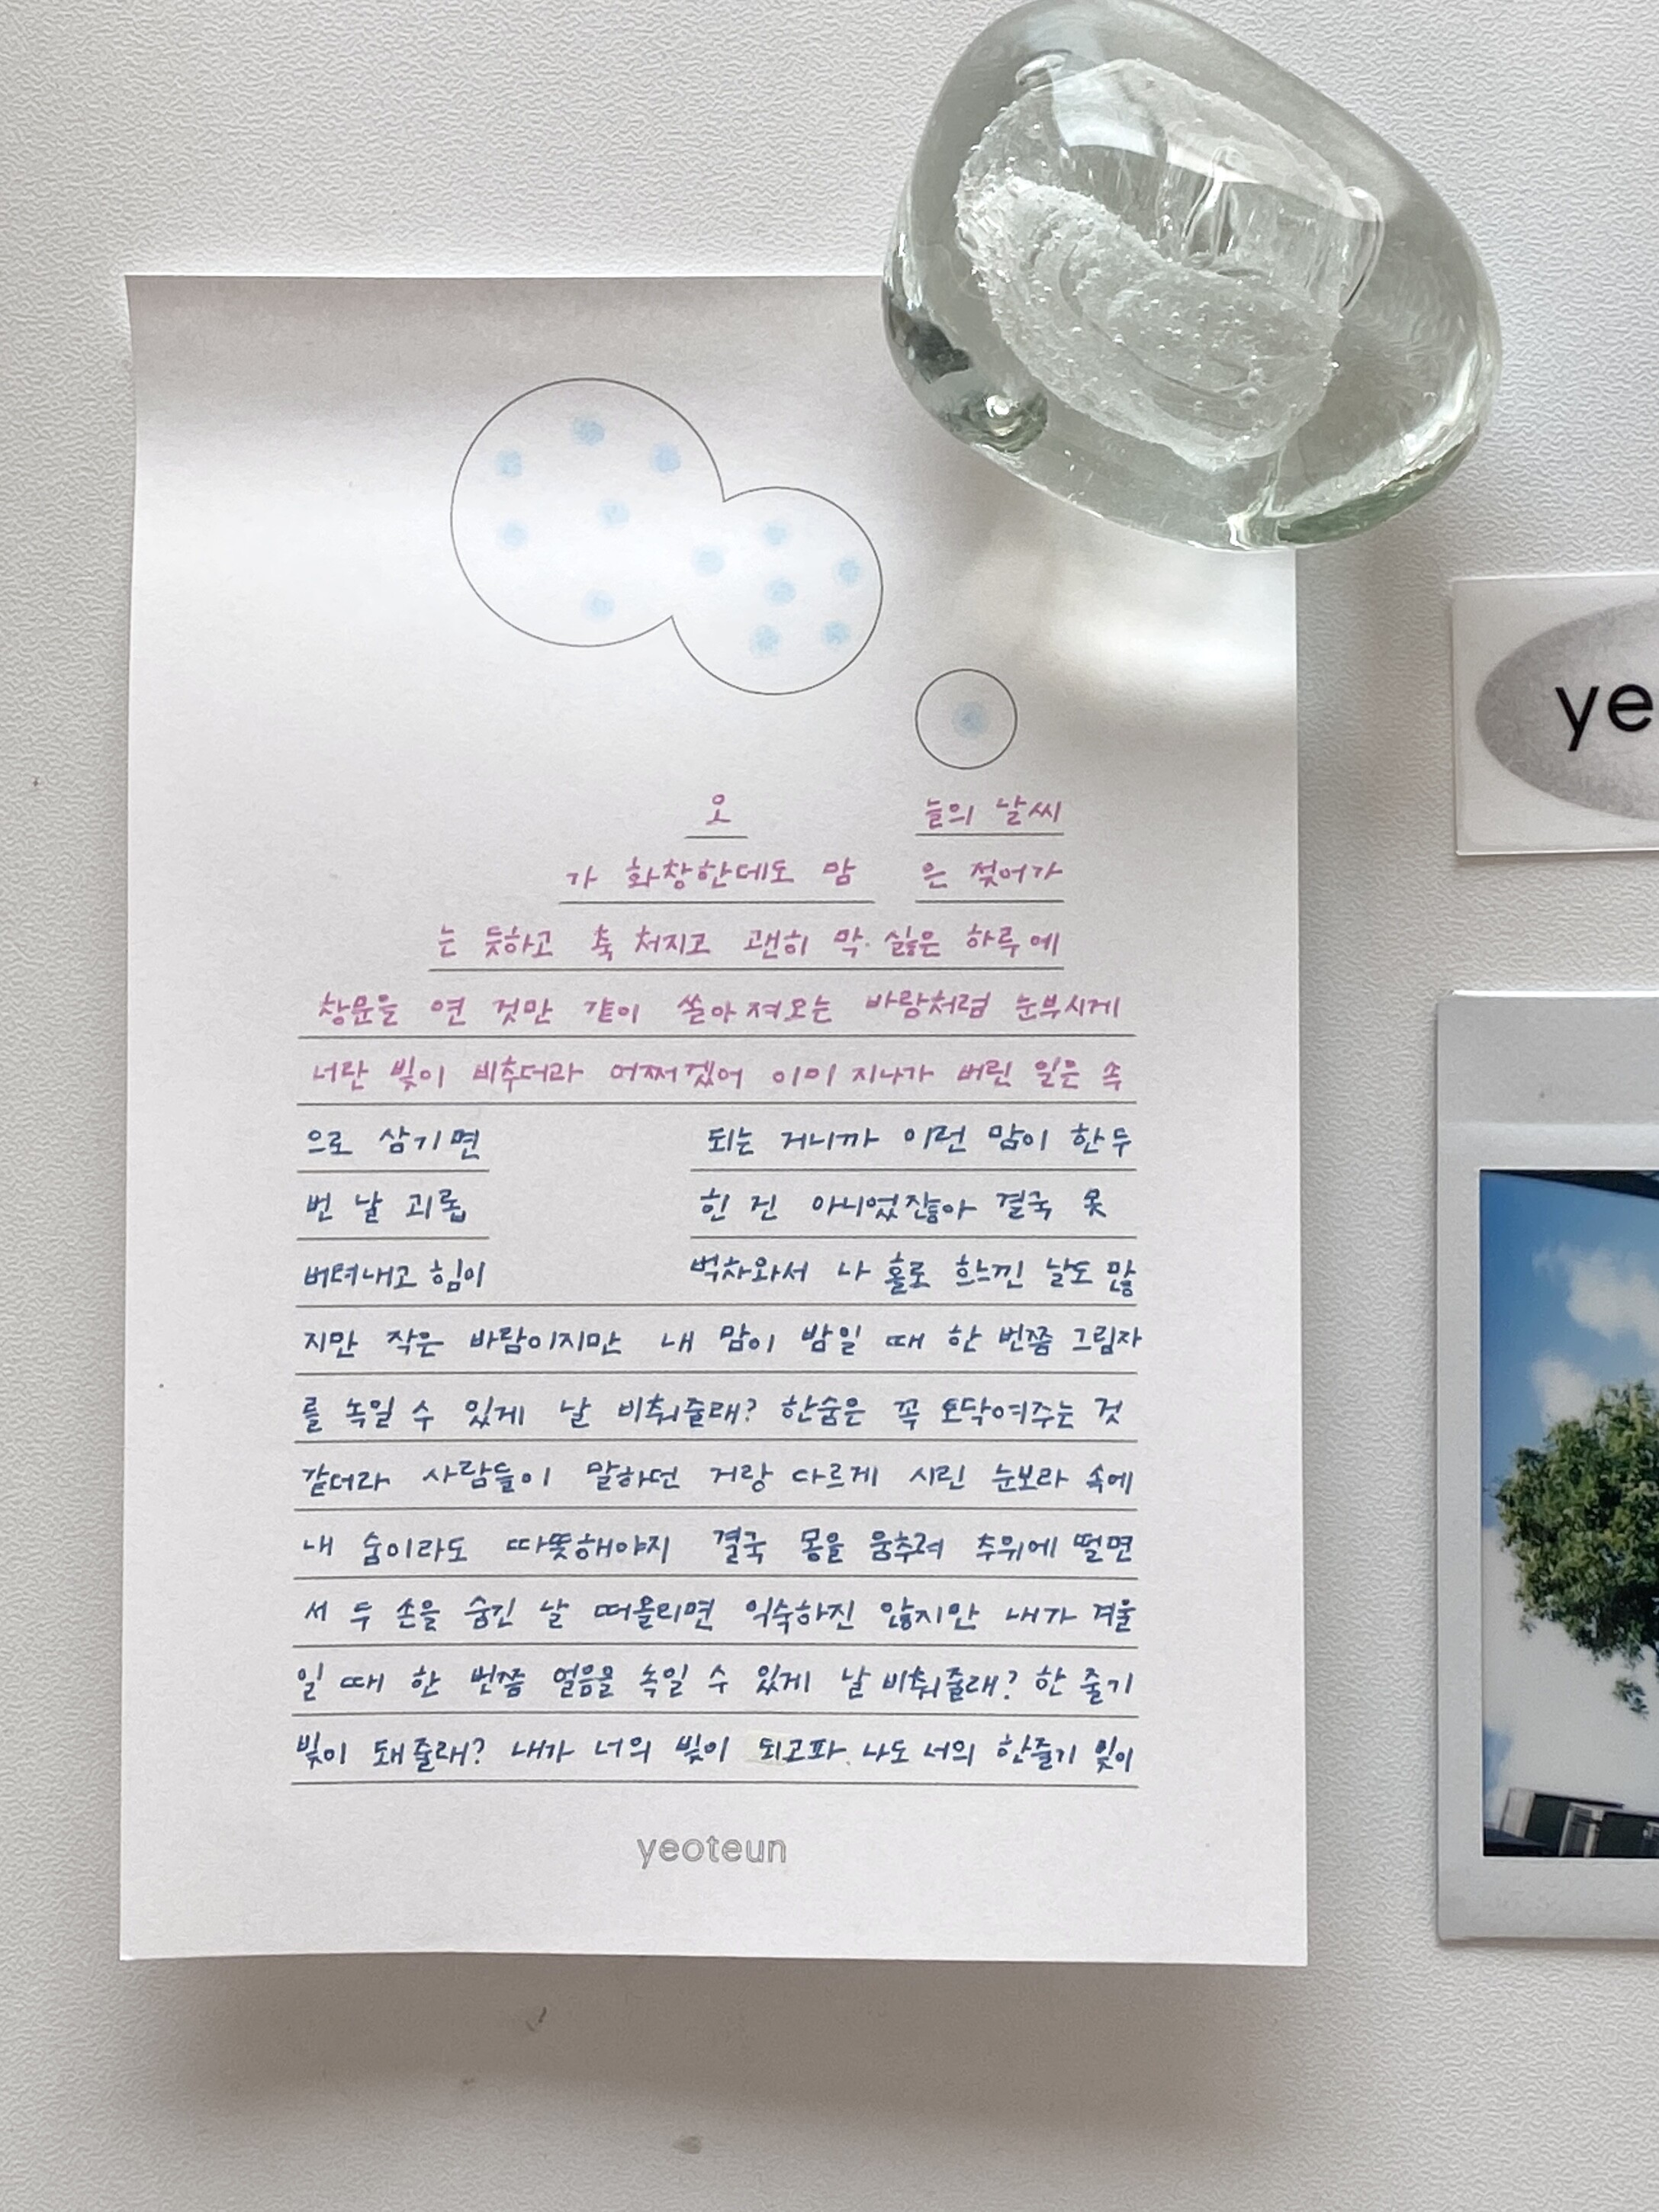 오 늘의 날씨
가 화창한데도 맘 은 젖어가
는 듯하고 축 처지고 괜히 막 싫은 하루에
창문을 연 것만 같이 쏟아져오는 바람처럼 눈부시게
너란 빛이 비추더라 어쩌겠어 이미 지나가 버린 일은 속
으로 삼기면 되는 거니까 이런 맘이 한두
번 날 괴롭 힌 건 아니었잖아 결국 못
버텨내고 힘이 벅차와서 나 홀로 흐느낀 날도 많
지만 작은 바람이지만 내 맘이 밤일 때 한 번쯤 그림자
를 녹일 수 있게 날 비춰줄래? 한숨은 꼭 토닥여주는 것
같더라 사람들이 말하던 거랑 다르게 시린 눈보라 속에
내 숨이라도 따뜻해야지 결국 몽을 움추려 추위에 떨면
서 두 손을 숨긴 날 떠올리면 익숙하진 않지만 내가 겨울
일 때 한 번쯤 얼음을 녹일 수 있게 날 비춰줄래? 한 줄기
빛이 돼줄래? 내가 너의 빛이 되고파 나도 너의 한줄기 빛이
yeoteun
ye